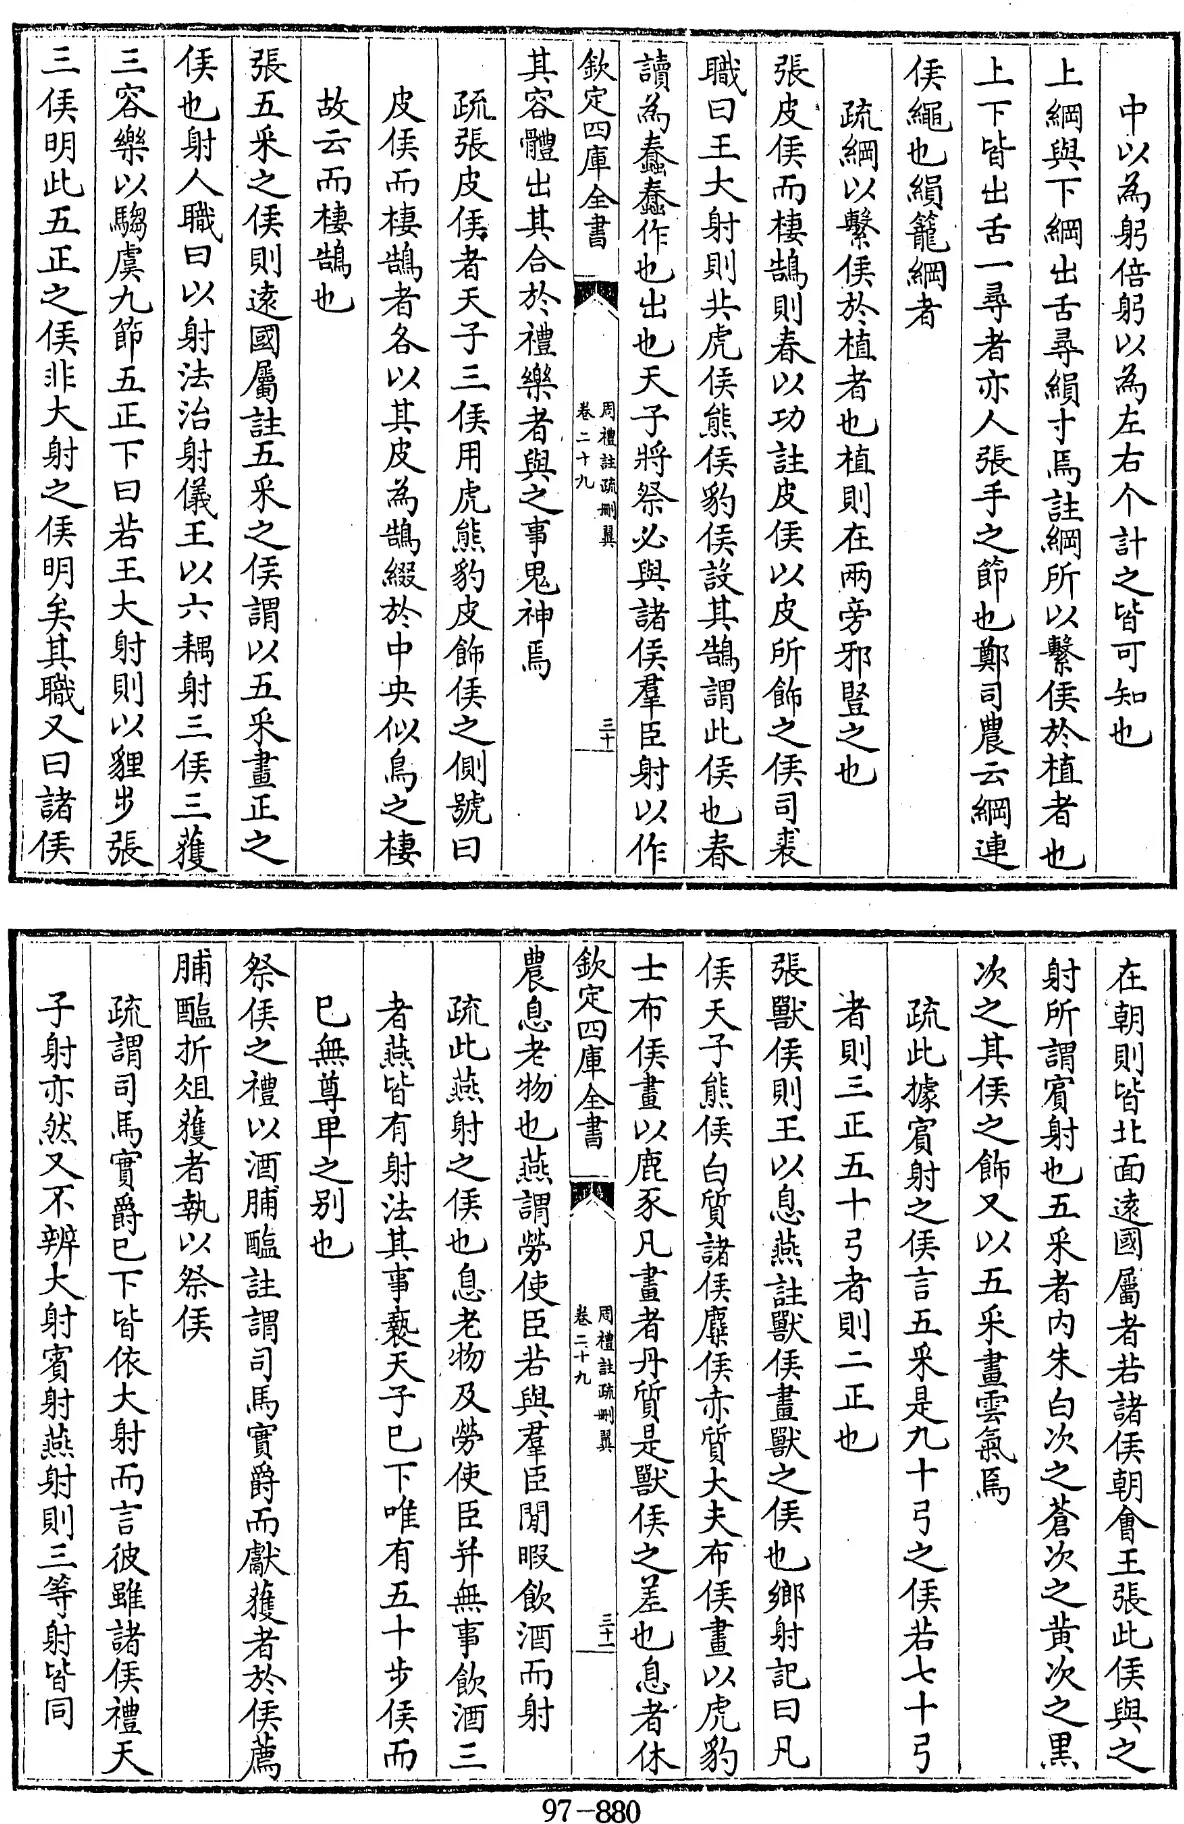 中以為躬倍躬以為左右个計之皆可知也
上綱與下綱出舌尋縜寸焉註綱所以繫侯於植者也
上下皆出舌一尋者亦人張手之節也鄭司農云綱連
侯繩也縜籠綱者
疏綱以繫侯於植者也植則在兩旁邪豎之也
張皮侯而棲鵠則春以功註皮侯以皮所飾之侯司裘
職曰王大射則共虎侯熊侯豹侯設其鵠謂此侯也春
讀為蠢蠢作也出也天子將祭必與諸侯羣臣射以作
欽定四庫全書
周禮註疏刪翼
卷二十九
三十
其容體出其合於禮樂者與之事鬼神焉
疏張皮侯者天子三侯用虎熊豹皮飾侯之側號曰
皮侯而棲鵠者各以其皮為鵠綴於中央似鳥之棲
故云而棲鵠也
張五采之侯則遠國屬註五采之侯謂以五采畫正之
侯也射人職曰以射法治射儀王以六耦射三侯三獲
三容樂以騶虞九節五正下曰若王大射則以貍步張
三侯明此五正之侯非大射之侯明矣其職又曰諸侯
在朝則皆北面遠國屬者若諸侯朝會王張此侯與之
射所謂賓射也五采者內朱白次之蒼次之黃次之黑
次之其侯之飾又以五采畫雲氣焉
疏此據賓射之侯言五采是九十弓之侯若七十弓
者則三正五十弓者則二正也
張獸侯則王以息燕註獸侯畫獸之侯也鄉射記曰凡
侯天子熊侯白質諸侯麋侯赤質大夫布侯畫以虎豹
士布侯畫以鹿豕凡畫者丹質是獸侯之差也息者休
欽定四庫全書
周禮註疏刪翼
卷二十九
三十一
農息老物也燕謂勞使臣若與羣臣閒暇飲酒而射
疏此燕射之侯也息老物及勞使臣并無事飲酒三
者燕皆有射法其事褻天子已下唯有五十步侯而
已無尊卑之別也
祭侯之禮以酒脯醢註謂司馬實爵而獻獲者於侯薦
脯醢折俎獲者執以祭侯
疏謂司馬實爵已下皆依大射而言彼雖諸侯禮天
子射亦然又不辨大射賓射燕射則三等射皆同
97-880